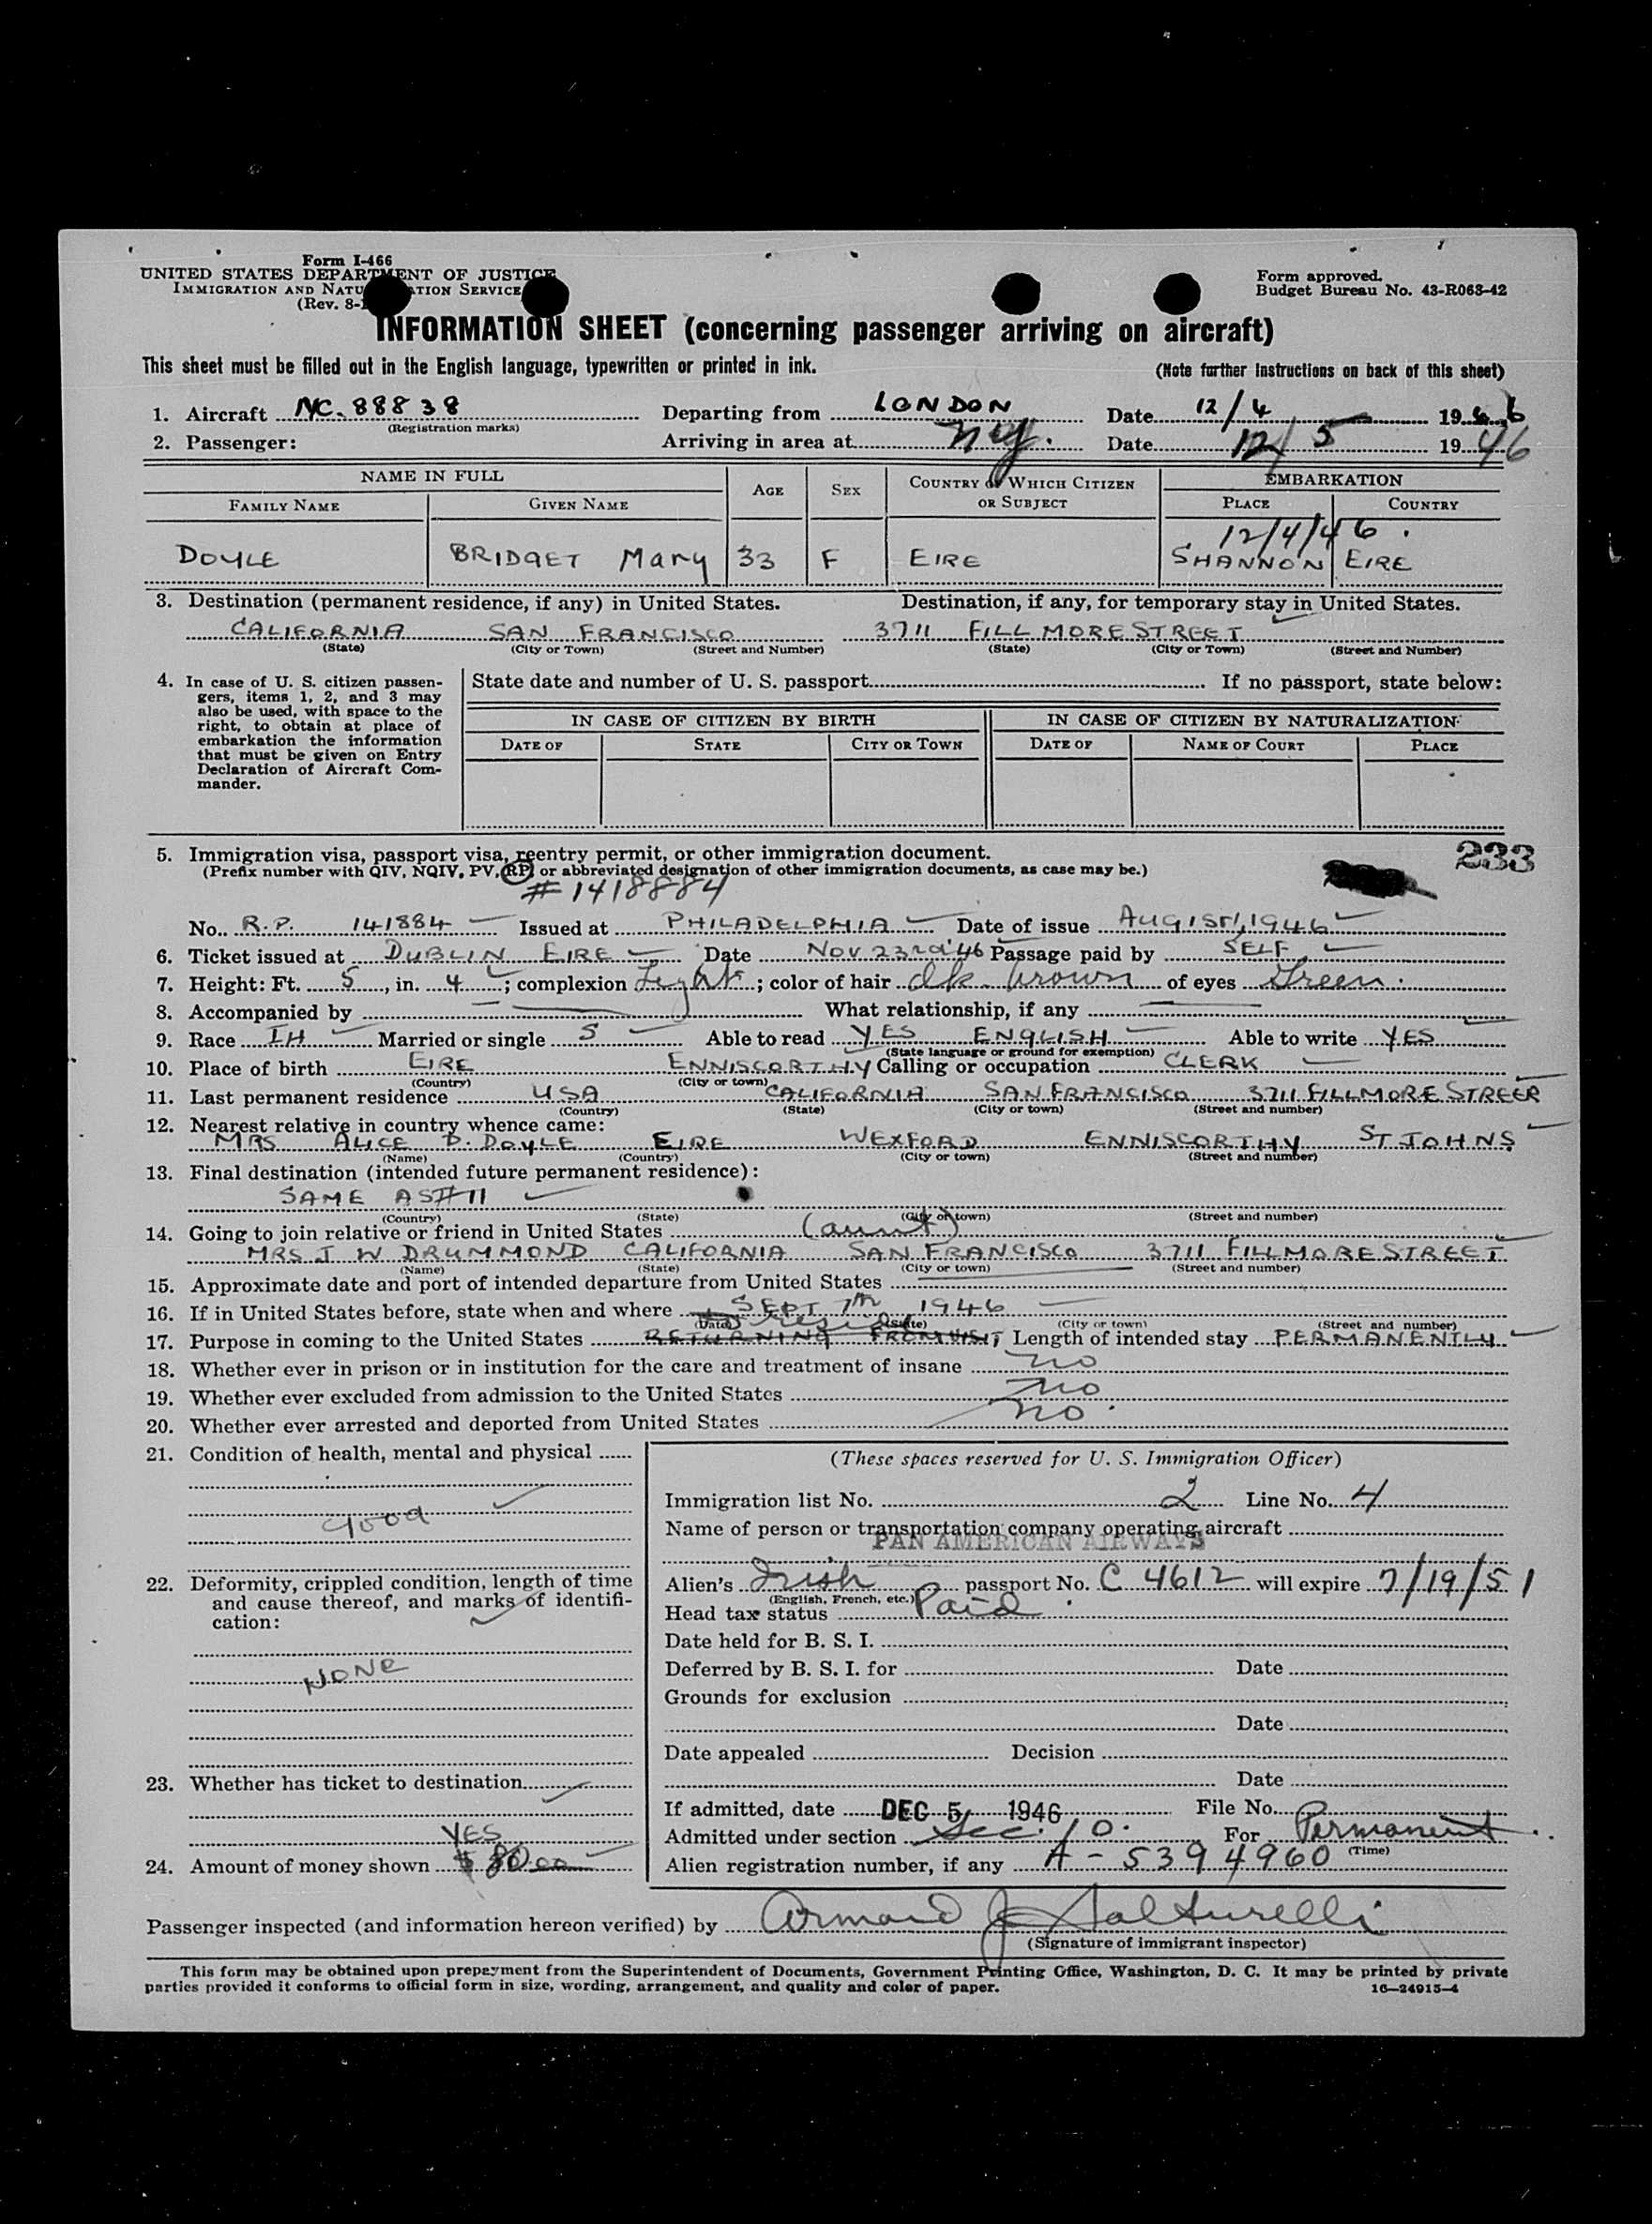 Form I-466
UNITED STATES DEPARTMENT OF JUSTICE
IMMIGRATION AND NATU ATION SERVICE
(Rev. 8-
Form approved.
Budget Bureau No. 43-R063-42
INFORMATION SHEET (concerning passenger arriving on aircraft)
This sheet must be filled out in the English language, typewritten or printed in ink.
(Note further instructions on back of this sheet)
1. Aircraft NC-88838 Departing from LONDON Date 12/4 1946
(Registration marks)
2. Passenger: Arriving in area at NY. Date 12/5 1946
NAME IN FULL AGE SEX COUNTRY OF WHICH CITIZEN OR SUBJECT EMBARKATION
FAMILY NAME GIVEN NAME PLACE COUNTRY
12/4/46.
DOYLE BRIDGET Mary 33 F EIRE SHANNON EIRE
3. Destination (permanent residence, if any) in United States. Destination, if any, for temporary stay in United States.
CALIFORNIA SAN FRANCISCO 3711 FILLMORE STREET
(State) (City or Town) (Street and Number) (State) (City or Town) (Street and Number)
4. In case of U. S. citizen passen-
gers, items 1, 2, and 3 may
also be used, with space to the
right, to obtain at place of
embarkation the information
that must be given on Entry
Declaration of Aircraft Com-
mander.
State date and number of U. S. passport If no passport, state below:
IN CASE OF CITIZEN BY BIRTH IN CASE OF CITIZEN BY NATURALIZATION
DATE OF STATE CITY OR TOWN DATE OF NAME OF COURT PLACE
233
5. Immigration visa, passport visa, reentry permit, or other immigration document.
(Prefix number with QIV, NQIV, PV, RP, or abbreviated designation of other immigration documents, as case may be.)
#1418884
No. R.P. 141884 Issued at PHILADELPHIA Date of issue AUG 1ST, 1946
6. Ticket issued at DUBLIN EIRE Date NOV 23rd '46 Passage paid by SELF
7. Height: Ft. 5, in. 4; complexion Light; color of hair dk brown of eyes Green.
8. Accompanied by What relationship, if any
9. Race IH Married or single S Able to read YES ENGLISH Able to write YES
(State language or ground for exemption)
10. Place of birth EIRE ENNISCORTHY Calling or occupation CLERK
(Country) (City or town)
11. Last permanent residence USA CALIFORNIA SAN FRANCISCO 3711 FILLMORE STREER
(Country) (State) (City or town) (Street and number)
12. Nearest relative in country whence came:
MRS ALICE D. DOYLE EIRE WEXFORD ENNISCORTHY ST JOHNS
(Name) (Country) (City or town) (Street and number)
13. Final destination (intended future permanent residence):
SAME AS #11
(Country) (State) (City or town) (Street and number)
14. Going to join relative or friend in United States (aunt)
MRS J W DRUMMOND CALIFORNIA SAN FRANCISCO 3711 FILLMORE STREET
(Name) (State) (City or town) (Street and number)
15. Approximate date and port of intended departure from United States
16. If in United States before, state when and where SEPT 7th 1946
(Date) (State) (City or town) (Street and number)
17. Purpose in coming to the United States RETURNING FROM VISIT Length of intended stay PERMANENTLY
18. Whether ever in prison or in institution for the care and treatment of insane no
19. Whether ever excluded from admission to the United States no
20. Whether ever arrested and deported from United States no.
21. Condition of health, mental and physical
good
22. Deformity, crippled condition, length of time
and cause thereof, and marks of identifi-
cation:
NONE
23. Whether has ticket to destination
YES
24. Amount of money shown $80.00
(These spaces reserved for U. S. Immigration Officer)
Immigration list No. 2 Line No. 4
Name of person or transportation company operating aircraft
PAN AMERICAN AIRWAYS
Alien's Irish passport No. C 4612 will expire 7/19/51
(English, French, etc.)
Head tax status Paid
Date held for B. S. I.
Deferred by B. S. I. for Date
Grounds for exclusion
Date
Date appealed Decision
Date
If admitted, date DEC 5 1946 File No.
Admitted under section Sec. 10. For Permanent
(Time)
Alien registration number, if any A-5394960
Passenger inspected (and information hereon verified) by Armand J Salturelli
(Signature of immigrant inspector)
This form may be obtained upon prepayment from the Superintendent of Documents, Government Printing Office, Washington, D. C. It may be printed by private
parties provided it conforms to official form in size, wording, arrangement, and quality and color of paper. 16—24915-4